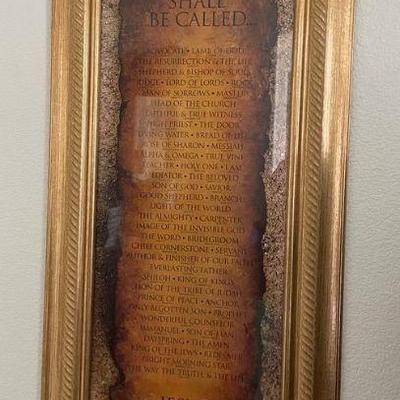 SHALL
BE CALLED...
ADVOCATE • LAMB OF GOD
THE RESURRECTION & THE LIFE
SHEPHERD & BISHOP OF SOULS
JUDGE • LORD OF LORDS • ROCK
MAN OF SORROWS • MASTER
HEAD OF THE CHURCH
FAITHFUL & TRUE WITNESS
HIGH PRIEST • THE DOOR
LIVING WATER • BREAD OF LIFE
ROSE OF SHARON • MESSIAH
ALPHA & OMEGA • TRUE VINE
TEACHER • HOLY ONE • I AM
MEDIATOR • THE BELOVED
SON OF GOD • SAVIOR
GOOD SHEPHERD • BRANCH
LIGHT OF THE WORLD
THE ALMIGHTY • CARPENTER
IMAGE OF THE INVISIBLE GOD
THE WORD • BRIDEGROOM
CHIEF CORNERSTONE • SERVANT
AUTHOR & FINISHER OF OUR FAITH
EVERLASTING FATHER
SHILOH • KING OF KINGS
LION OF THE TRIBE OF JUDAH
PRINCE OF PEACE • ANCHOR
ONLY BEGOTTEN SON • PROPHET
WONDERFUL COUNSELOR
IMMANUEL • SON OF MAN
DAYSPRING • THE AMEN
KING OF THE JEWS • REDEEMER
BRIGHT MORNING STAR
THE WAY THE TRUTH, & THE LIFE